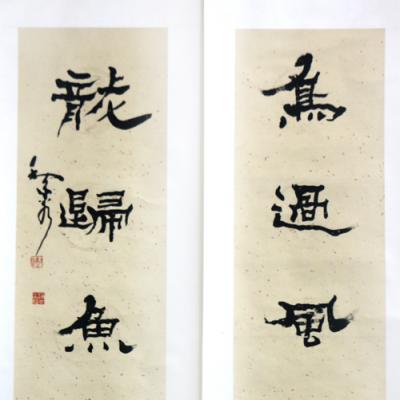 鳥過風
龍歸魚